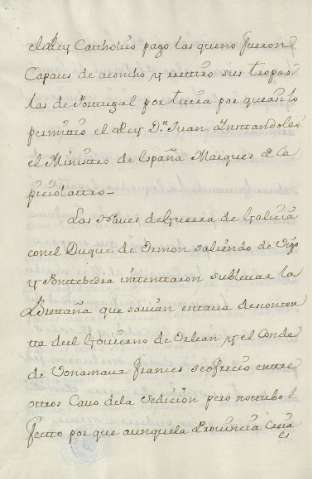 el Rey Catholico pago las que no fueron
Capaces de aconcho y metiro sus tropas
las de Portugal por tierra por que asi lo
permitio el Rey Dn. Juan
el Ministro de España Marques de Ca
picciolatro-
Las Naues de Guerra de Galicia
con el Duque de Ormon saliendo de Vigo
y Pontebedra intentaron subleuar la
Bretaña que sauian entaua desconten
tta del Gouierno de Orlean y el Conde
de Bonamaur frances se ofrecio entre
otros Cauo de la sedicion pero no tubo l
fecto por que aunque la Prouincia